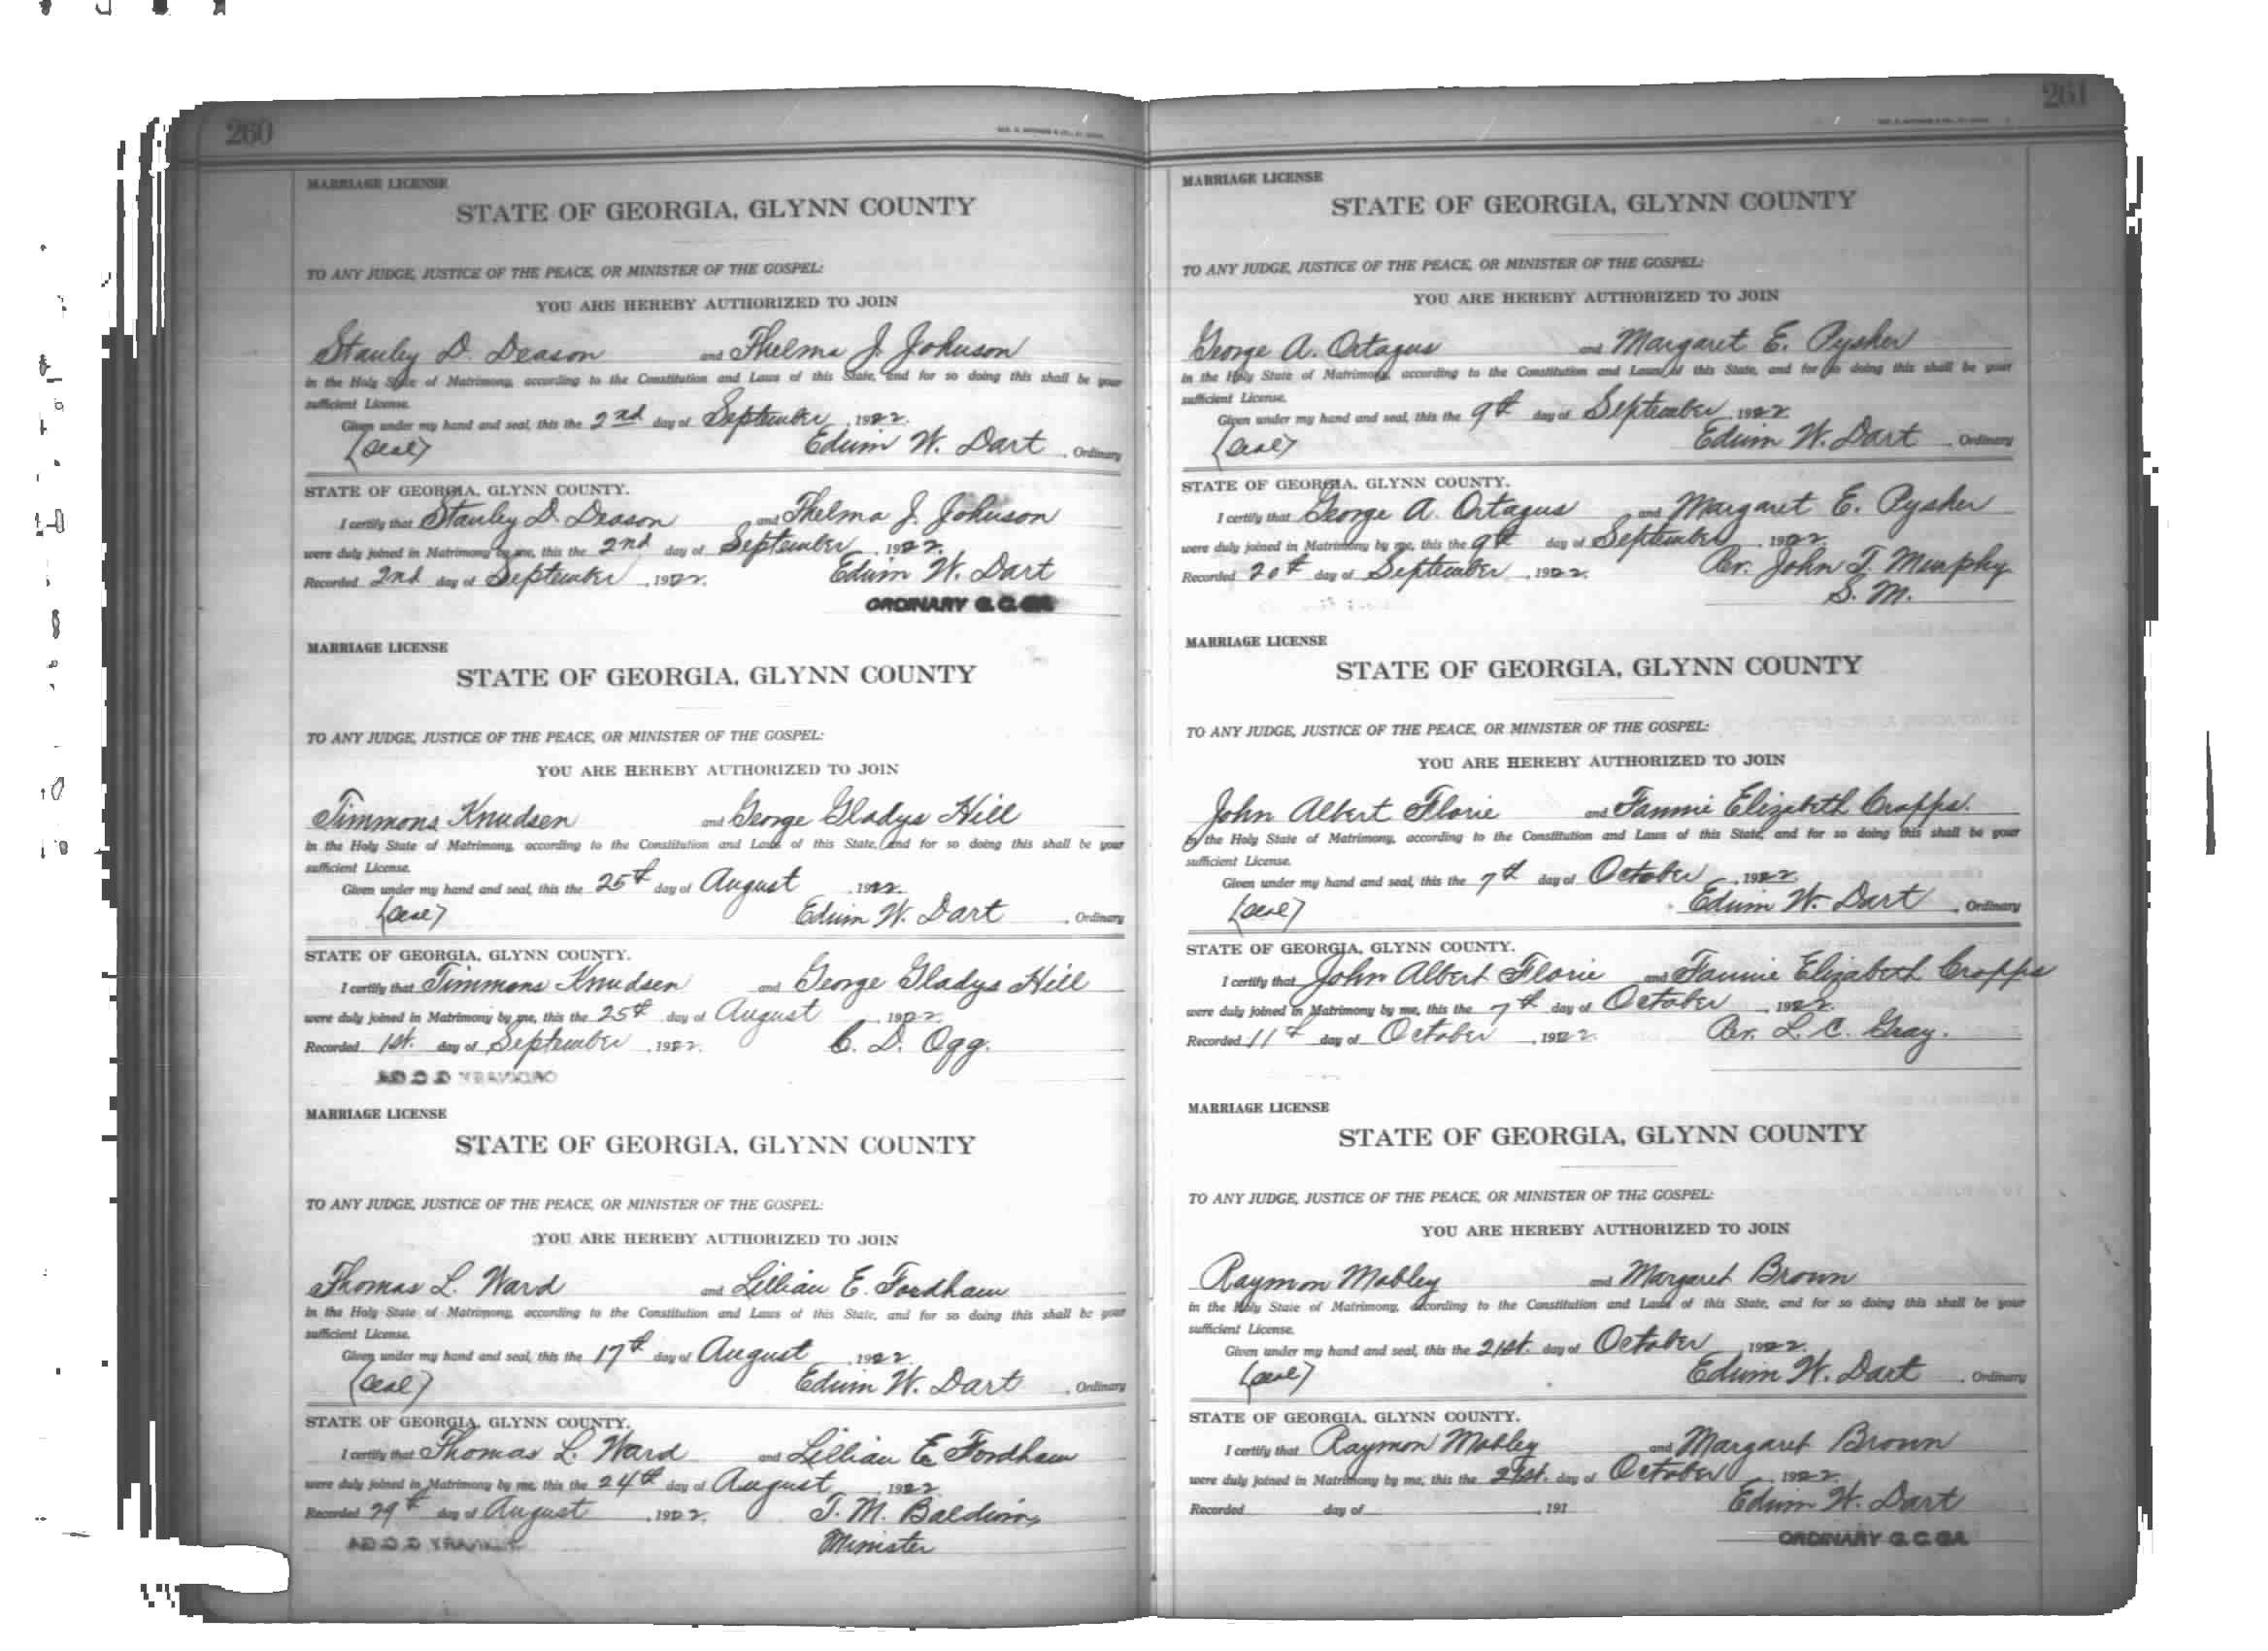 260
MARRIAGE LICENSE
STATE OF GEORGIA, GLYNN COUNTY
TO ANY JUDGE, JUSTICE OF THE PEACE, OR MINISTER OF THE GOSPEL:
YOU ARE HEREBY AUTHORIZED TO JOIN
Stanley D. Deason and Thelma J. Johnson
in the Holy State of Matrimony, according to the Constitution and Laws of this State, and for so doing this shall be your
sufficient License.
Given under my hand and seal, this the 2nd day of September, 1922.
(Seal) Edwin W. Dart, Ordinary
STATE OF GEORGIA, GLYNN COUNTY.
I certify that Stanley D. Deason and Thelma J. Johnson
were duly joined in Matrimony by me, this the 2nd day of September, 1922.
Recorded 2nd day of September, 1922. Edwin W. Dart
ORDINARY G. C. GA
MARRIAGE LICENSE
STATE OF GEORGIA, GLYNN COUNTY
TO ANY JUDGE, JUSTICE OF THE PEACE, OR MINISTER OF THE GOSPEL:
YOU ARE HEREBY AUTHORIZED TO JOIN
Timmons Knudsen and George Gladys Hill
in the Holy State of Matrimony, according to the Constitution and Laws of this State, and for so doing this shall be your
sufficient License.
Given under my hand and seal, this the 25th day of August, 1922.
(Seal) Edwin W. Dart, Ordinary
STATE OF GEORGIA, GLYNN COUNTY.
I certify that Timmons Knudsen and George Gladys Hill
were duly joined in Matrimony by me, this the 25th day of August, 1922.
Recorded 1st. day of September, 1922. C. D. Ogg.
MARRIAGE LICENSE
STATE OF GEORGIA, GLYNN COUNTY
TO ANY JUDGE, JUSTICE OF THE PEACE, OR MINISTER OF THE GOSPEL:
YOU ARE HEREBY AUTHORIZED TO JOIN
Thomas L. Ward and Lillian E. Fordham
in the Holy State of Matrimony, according to the Constitution and Laws of this State, and for so doing this shall be your
sufficient License.
Given under my hand and seal, this the 17th day of August, 1922.
(Seal) Edwin W. Dart, Ordinary
STATE OF GEORGIA, GLYNN COUNTY.
I certify that Thomas L. Ward and Lillian E. Fordham
were duly joined in Matrimony by me, this the 24th day of August, 1922.
Recorded 29th day of August, 1922. T. M. Baldwin,
Minister
261
MARRIAGE LICENSE
STATE OF GEORGIA, GLYNN COUNTY
TO ANY JUDGE, JUSTICE OF THE PEACE, OR MINISTER OF THE GOSPEL:
YOU ARE HEREBY AUTHORIZED TO JOIN
George A. Ortagus and Margaret E. Pysher
in the Holy State of Matrimony, according to the Constitution and Laws of this State, and for so doing this shall be your
sufficient License.
Given under my hand and seal, this the 9th day of September, 1922.
(Seal) Edwin W. Dart, Ordinary
STATE OF GEORGIA, GLYNN COUNTY.
I certify that George A. Ortagus and Margaret E. Pysher
were duly joined in Matrimony by me, this the 9th day of September, 1922.
Recorded 20th day of September, 1922. Rev. John T. Murphy
S. M.
MARRIAGE LICENSE
STATE OF GEORGIA, GLYNN COUNTY
TO ANY JUDGE, JUSTICE OF THE PEACE, OR MINISTER OF THE GOSPEL:
YOU ARE HEREBY AUTHORIZED TO JOIN
John Albert Florie and Fannie Elizabeth Crapps.
in the Holy State of Matrimony, according to the Constitution and Laws of this State, and for so doing this shall be your
sufficient License.
Given under my hand and seal, this the 7th day of October, 1922.
(Seal) Edwin W. Dart, Ordinary
STATE OF GEORGIA, GLYNN COUNTY.
I certify that John Albert Florie and Fannie Elizabeth Crapps
were duly joined in Matrimony by me, this the 7th day of October, 1922.
Recorded 11th day of October, 1922. Rev. L. C. Gray.
MARRIAGE LICENSE
STATE OF GEORGIA, GLYNN COUNTY
TO ANY JUDGE, JUSTICE OF THE PEACE, OR MINISTER OF THE GOSPEL:
YOU ARE HEREBY AUTHORIZED TO JOIN
Raymon Mobley and Margaret Brown
in the Holy State of Matrimony, according to the Constitution and Laws of this State, and for so doing this shall be your
sufficient License.
Given under my hand and seal, this the 21st. day of October, 1922.
(Seal) Edwin W. Dart, Ordinary
STATE OF GEORGIA, GLYNN COUNTY.
I certify that Raymon Mobley and Margaret Brown
were duly joined in Matrimony by me, this the 21st. day of October, 1922.
Recorded day of , 191 Edwin W. Dart
ORDINARY G. C. GA.